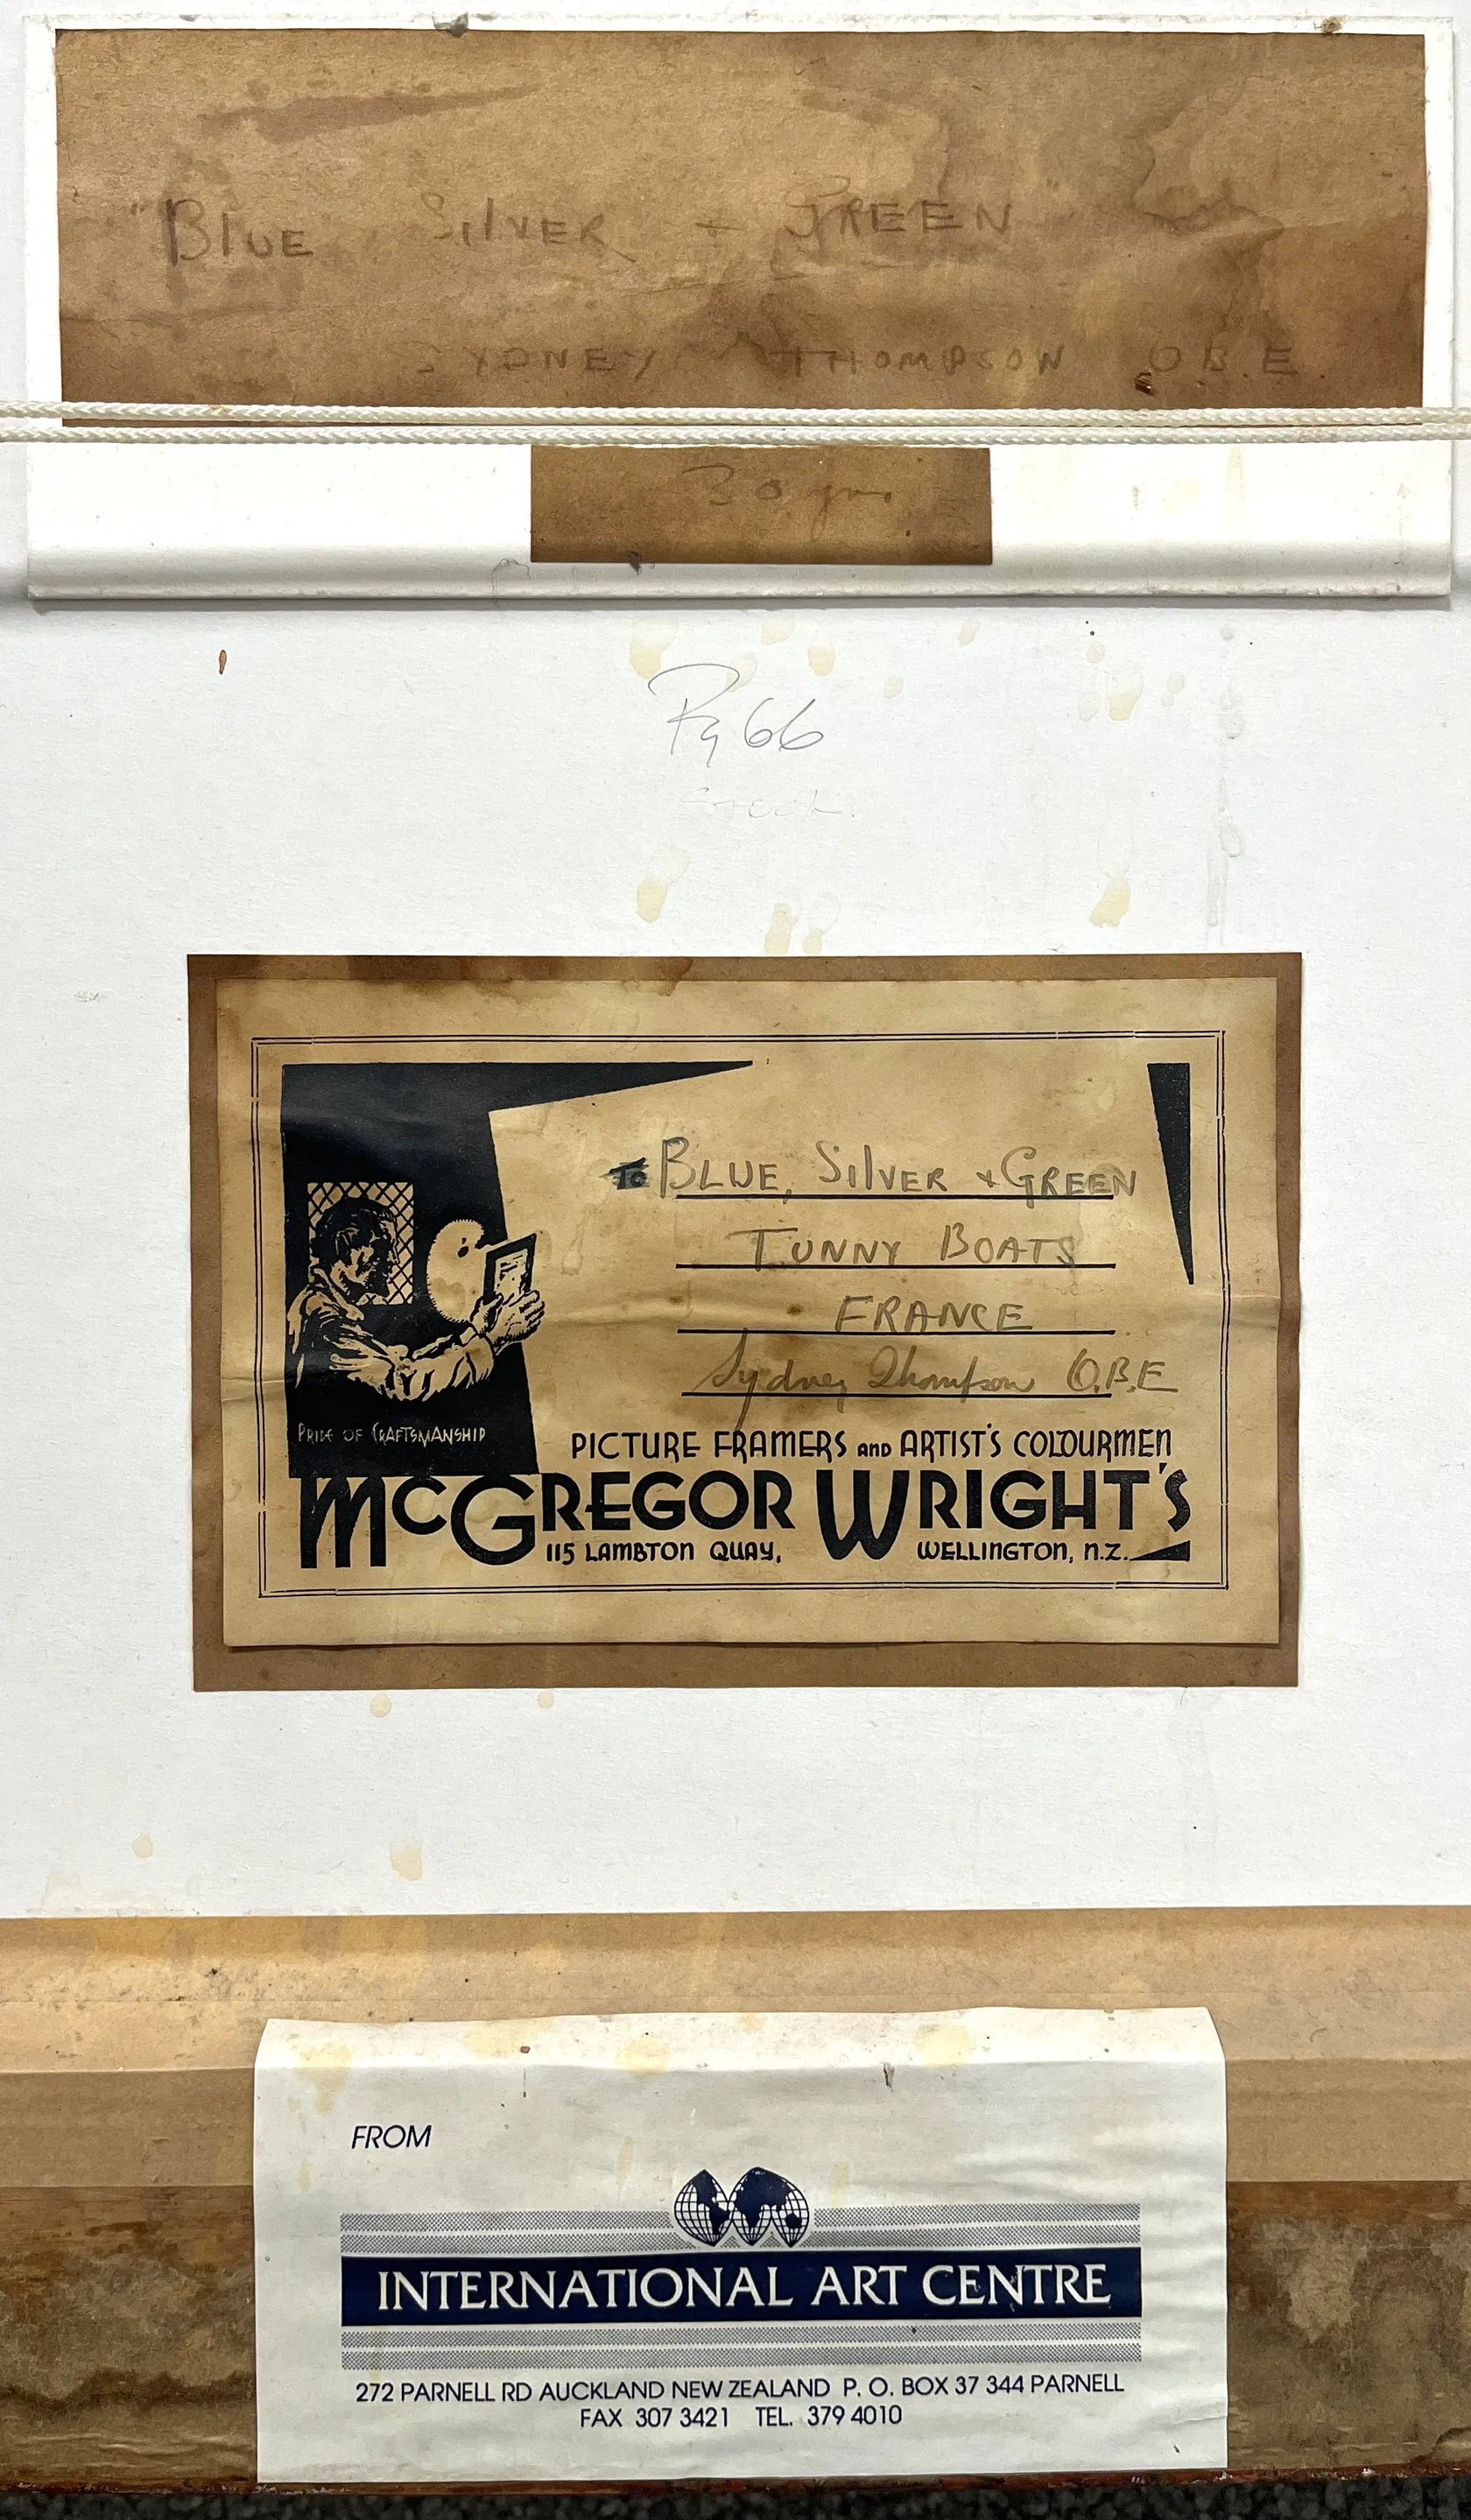 "BLUE SILVER + GREEN"
SYDNEY THOMPSON O.B.E.
30 gns
Pg 66
BLUE, SILVER + GREEN
TUNNY BOATS
FRANCE
Sydney Thompson O.B.E
PRIDE OF CRAFTSMANSHIP
PICTURE FRAMERS AND ARTIST'S COLOURMEN
McGREGOR WRIGHT'S
115 LAMBTON QUAY, WELLINGTON, N.Z.
FROM
INTERNATIONAL ART CENTRE
272 PARNELL RD AUCKLAND NEW ZEALAND P. O. BOX 37 344 PARNELL
FAX 307 3421 TEL. 379 4010